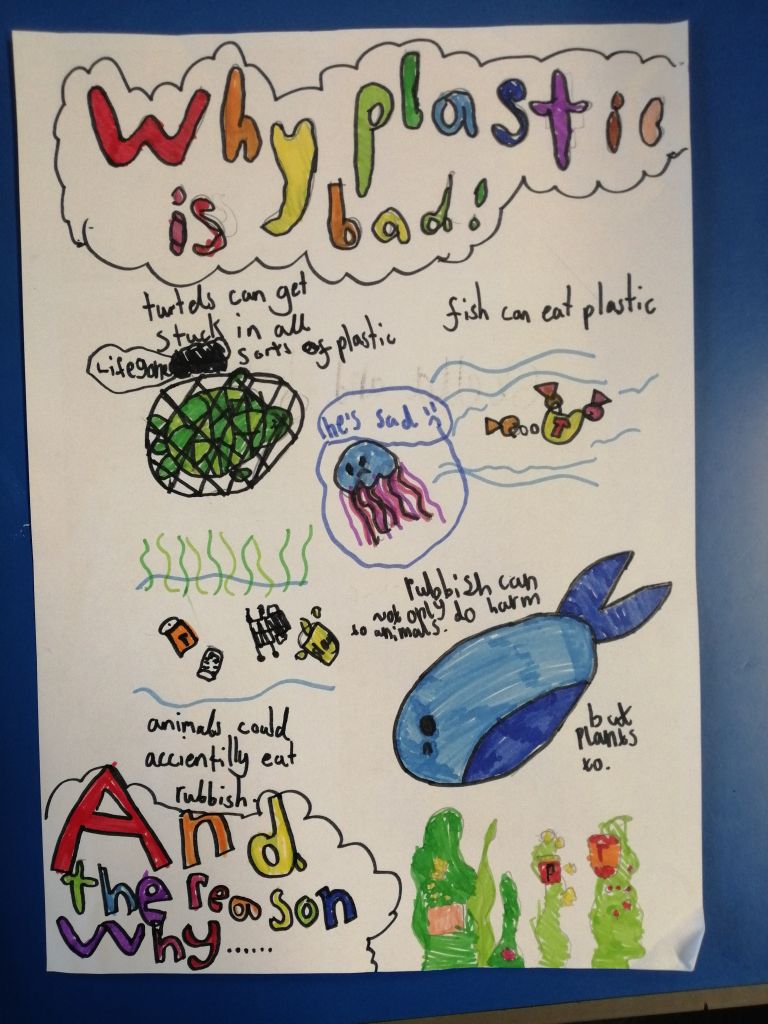 Why plastic
is bad!
turtels can get
stuck in all
sorts of plastic
fish can eat plastic
he's sad
rubbish can
not only do harm
to animals.
but
plants
to.
animals could
accientilly eat
rubbish.
And
the reason
Why......